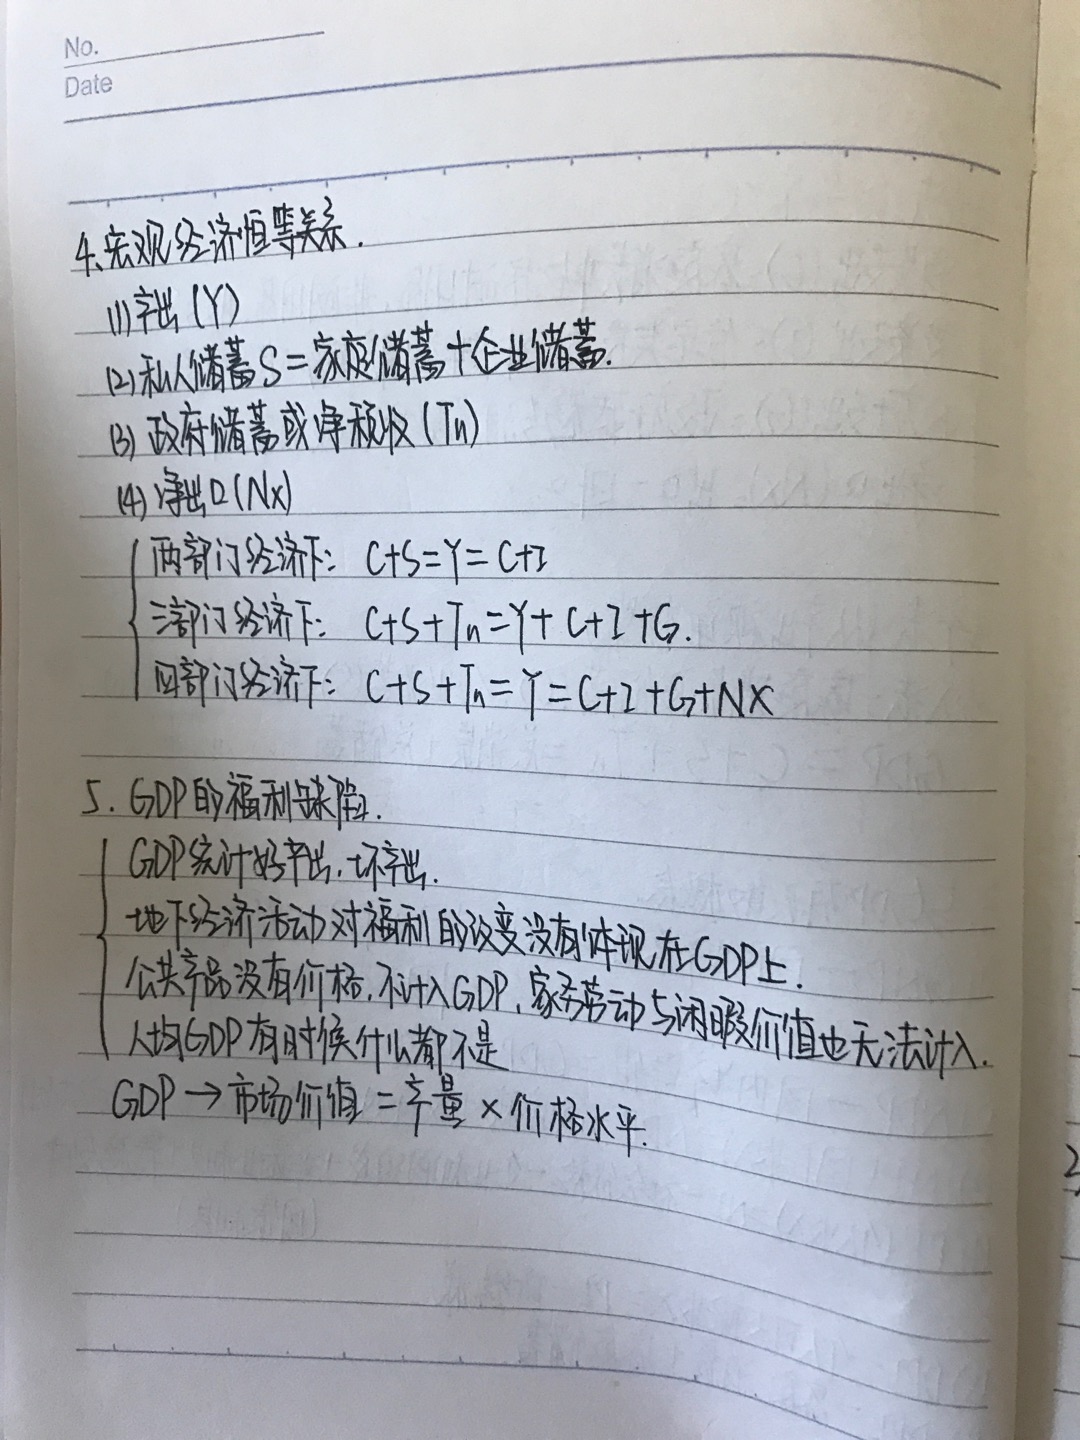 No.
Date
4、宏观经济恒等关系.
(1)产出(Y)
(2)私人储蓄S=家庭储蓄+企业储蓄.
(3)政府储蓄或净税收(Tn)
(4)净出口(NX)
两部门经济下: C+S=Y=C+I
三部门经济下: C+S+Tn=Y+C+I+G.
四部门经济下: C+S+Tn=Y=C+I+G+NX
5.GDP的福利缺陷.
GDP统计好产出,坏产出.
地下经济活动对福利的改变没有体现在GDP上.
公共产品没有价格,不计入GDP,家务劳动与闲暇价值也无法计入.
人均GDP有时候什么都不是
GDP→市场价值=产量×价格水平.
2.